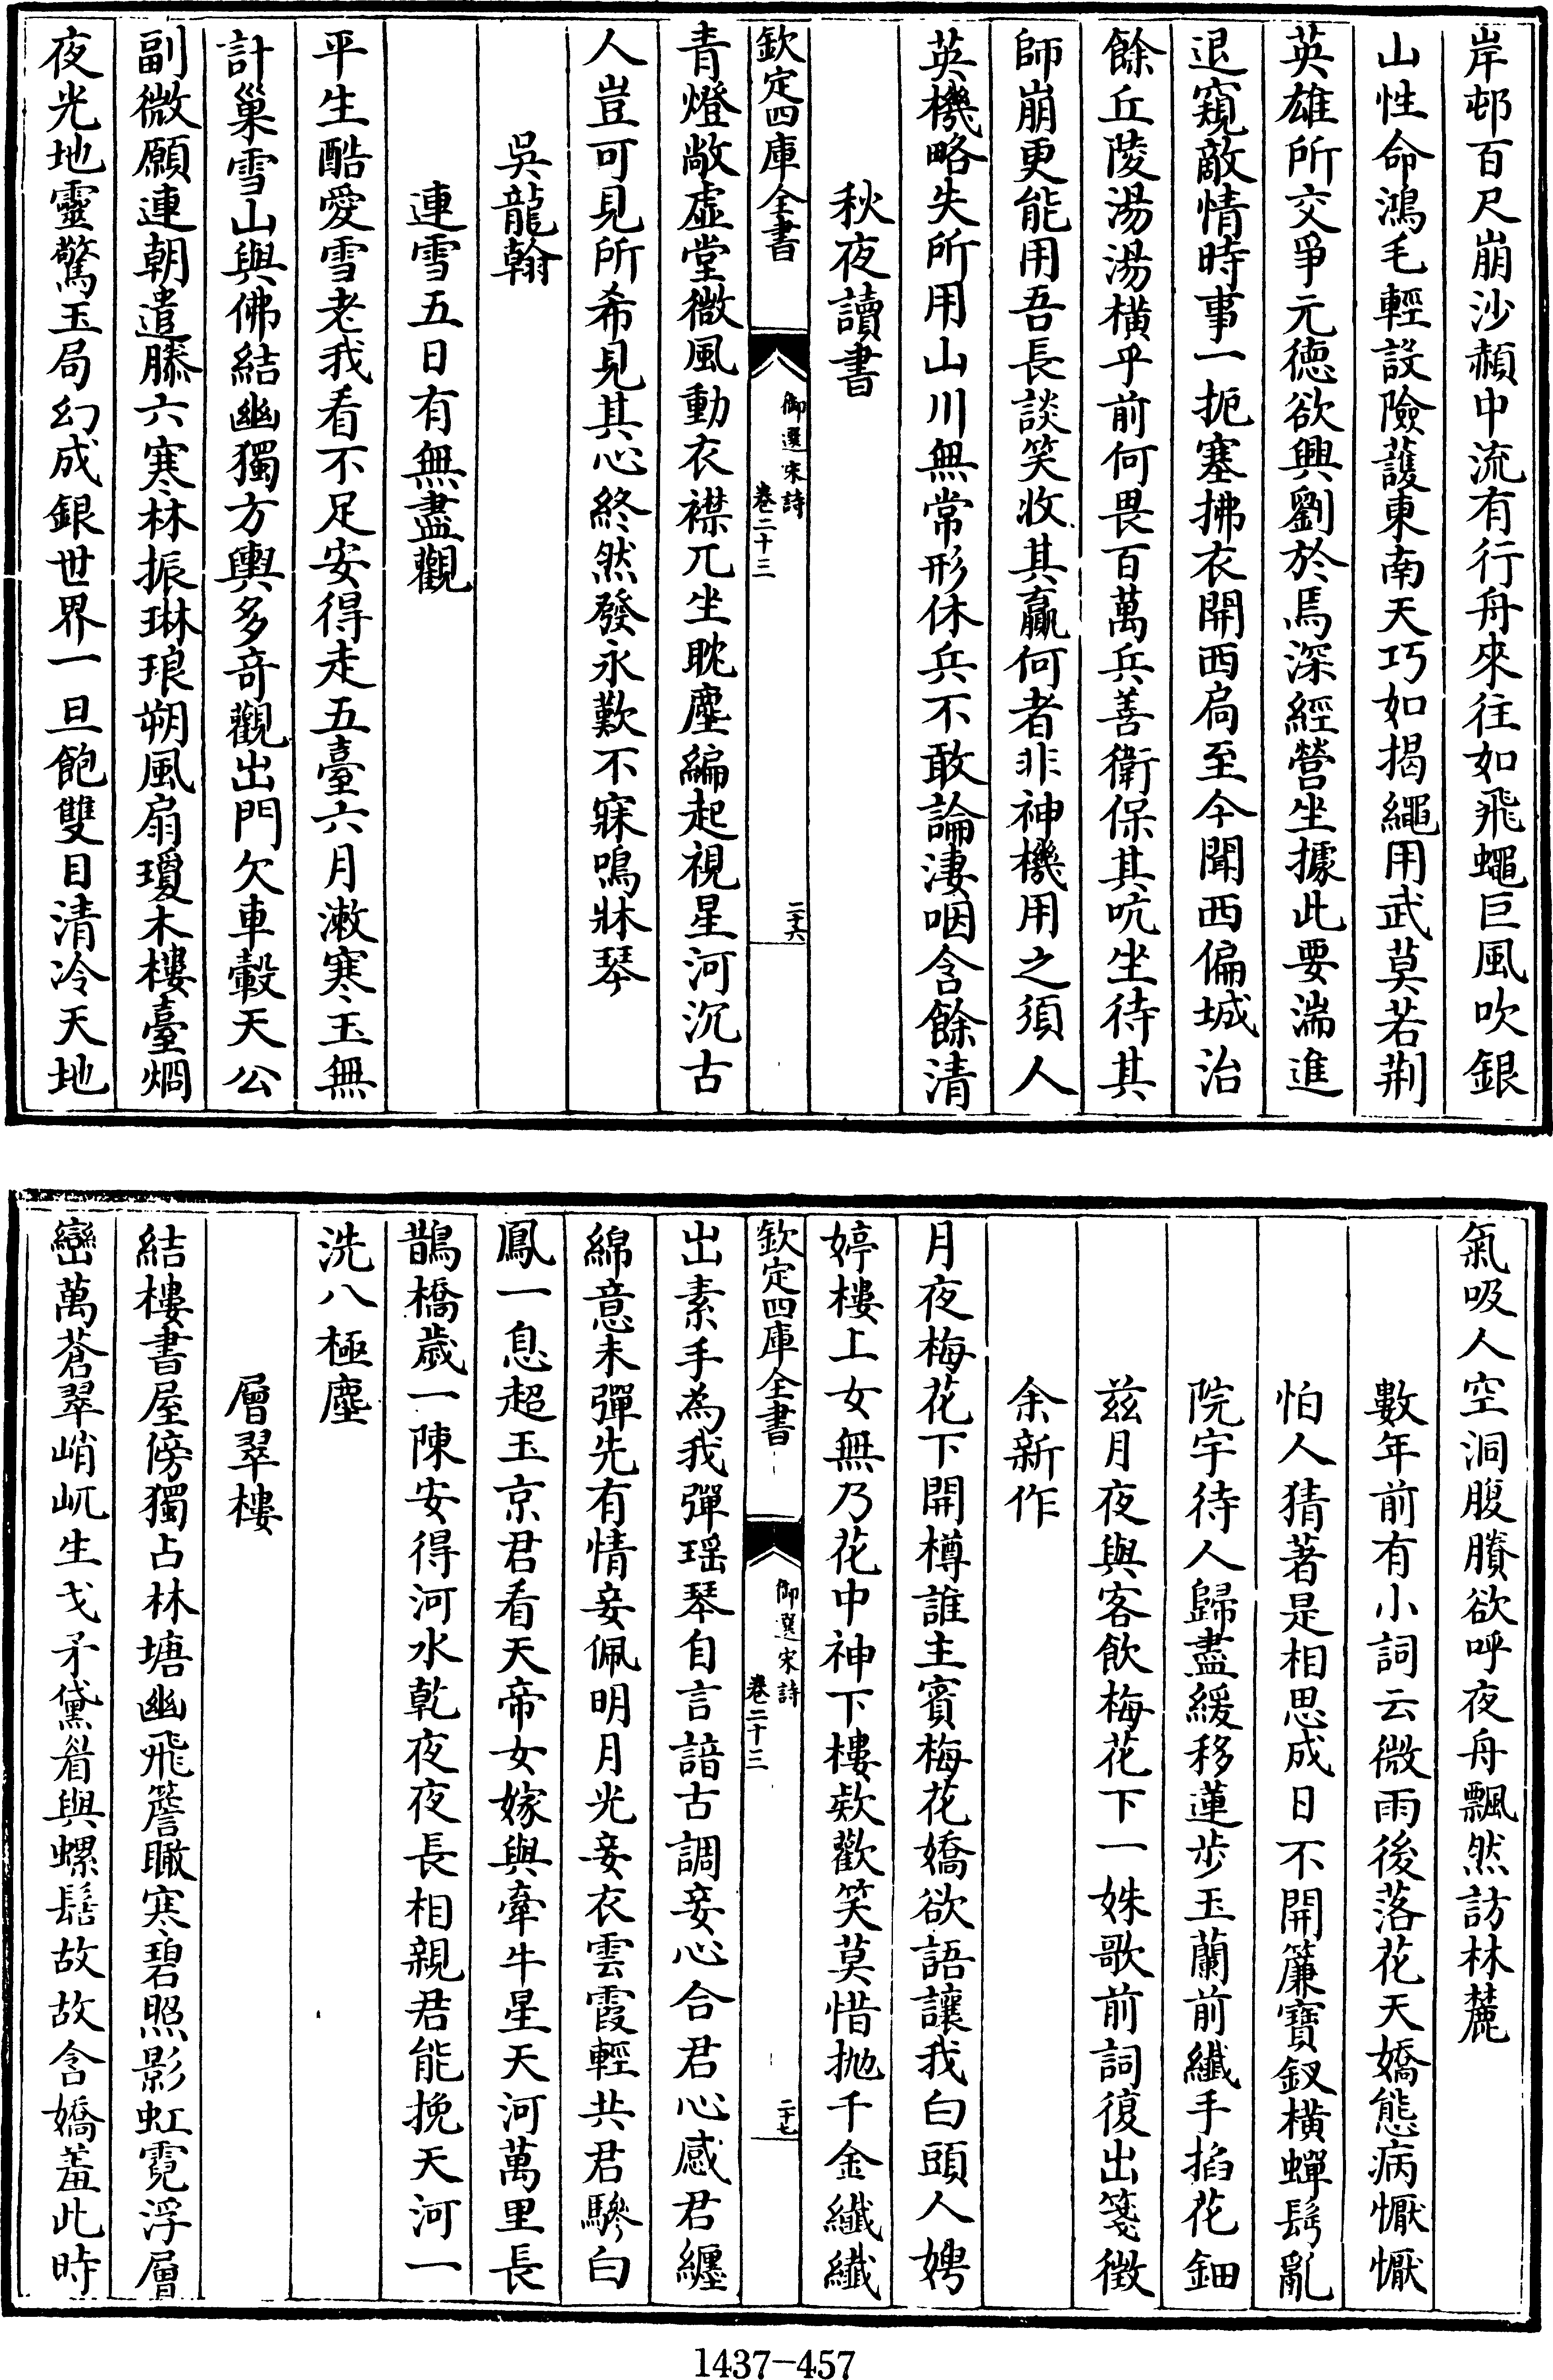 岸邨百尺崩沙頳中流有行舟來往如飛蠅巨風吹銀
山性命鴻毛輕設險護東南天巧如揭繩用武莫若荆
英雄所交爭元德欲興劉於焉深經營坐據此要湍進
退窺敵情時事一扼塞拂衣開西扃至今聞西偏城治
餘丘陵湯湯橫乎前何畏百萬兵善衛保其吭坐待其
師崩更能用吾長談笑收其贏何者非神機用之須人
英機略失所用山川無常形休兵不敢論淒咽含餘清
秋夜讀書
欽定四庫全書
御選宋詩
卷二十三
二十六
青燈敞虛堂微風動衣襟兀坐耽塵編起視星河沉古
人豈可見所希見其心終然發永歎不寐鳴牀琴
吳龍翰
連雪五日有無盡觀
平生酷愛雪老我看不足安得走五臺六月漱寒玉無
計巢雪山與佛結幽獨方輿多奇觀出門欠車轂天公
副微願連朝遣滕六寒林振琳琅朔風扇瓊木樓臺烱
夜光地靈驚玉局幻成銀世界一旦飽雙目清冷天地
氣吸人空洞腹賸欲呼夜舟飄然訪林麓
數年前有小詞云微雨後落花天嬌態病懨懨
怕人猜著是相思成日不開簾寶釵橫蟬髩亂
院宇待人歸盡緩移蓮步玉蘭前纖手掐花鈿
兹月夜與客飲梅花下一姝歌前詞復出箋徵
余新作
月夜梅花下開樽誰主賓梅花嬌欲語讓我白頭人娉
婷樓上女無乃花中神下樓欵歡笑莫惜抛千金纖纖
欽定四庫全書
御選宋詩
卷二十三
二十七
出素手為我彈瑶琴自言諳古調妾心合君心感君纏
綿意未彈先有情妾佩明月光妾衣雲霞輕共君驂白
鳳一息超玉京君看天帝女嫁與牽牛星天河萬里長
鵲橋歲一陳安得河水乾夜夜長相親君能挽天河一
洗八極塵
層翠樓
結樓書屋傍獨占林塘幽飛簷瞰寒碧照影虹霓浮層
巒萬蒼翠峭屼生戈矛黛眉與螺髻故故含嬌羞此時
1437-457